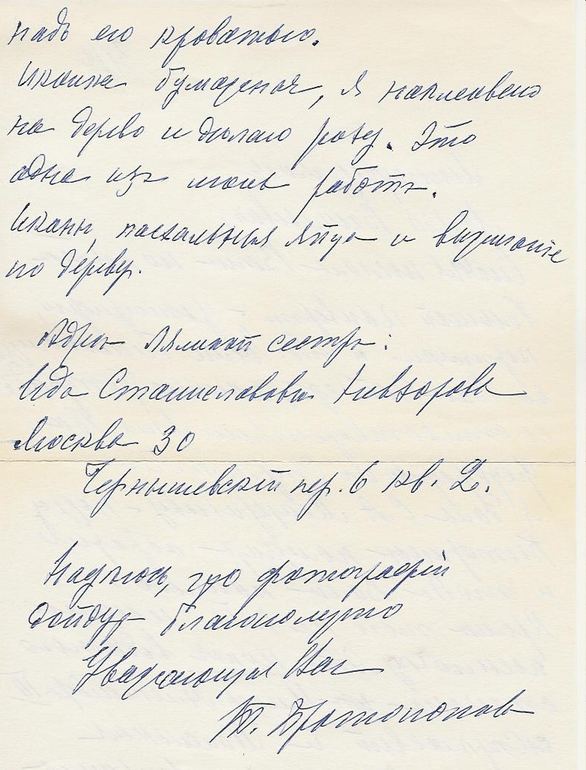 надъ его кроватью.
Иконка бумажная, я наклеиваю
на дерево и делаю ризу. Это
одна изъ моихъ работъ.
Иконы, пасхальныя яйца и выжиганіе
по дереву.
Адресъ Лялиной сестры:
Ида Станиславовна Невзорова
Москва 30
Чернышевскій пер. 6 кв. 2.
Надѣюсь, что фотографіи
дойдутъ благополучно
Уважающая Васъ
Т. Протопопова